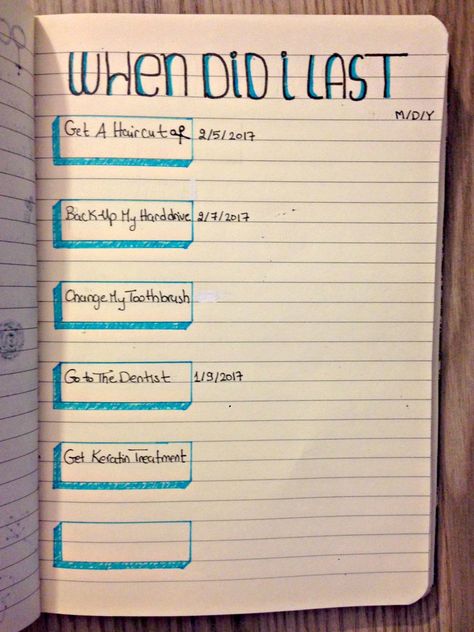 WHEN DID i LAST
M/D/Y
Get A Haircut 2/5/2017
Back-Up My Harddrive 2/7/2017
Change My Toothbrush
Go to The Dentist 1/9/2017
Get Keratin Treatment